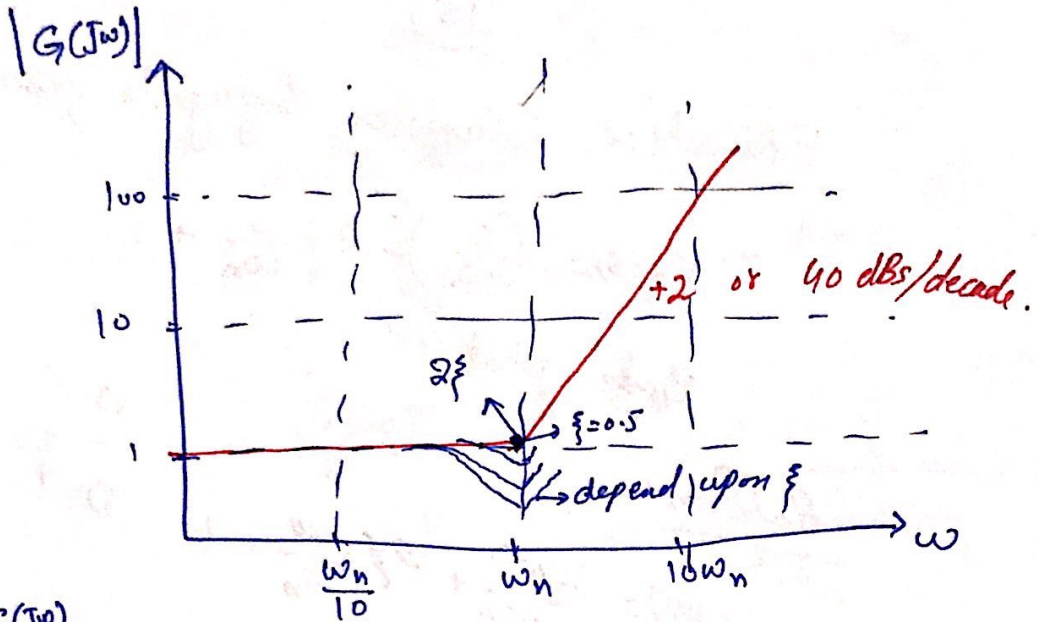 |G(Jω)|
100
+2 or 40 dBs/decade.
10
2ξ
ξ=0.5
1
→depend upon ξ
ω
ωn/10
ωn
10ωn